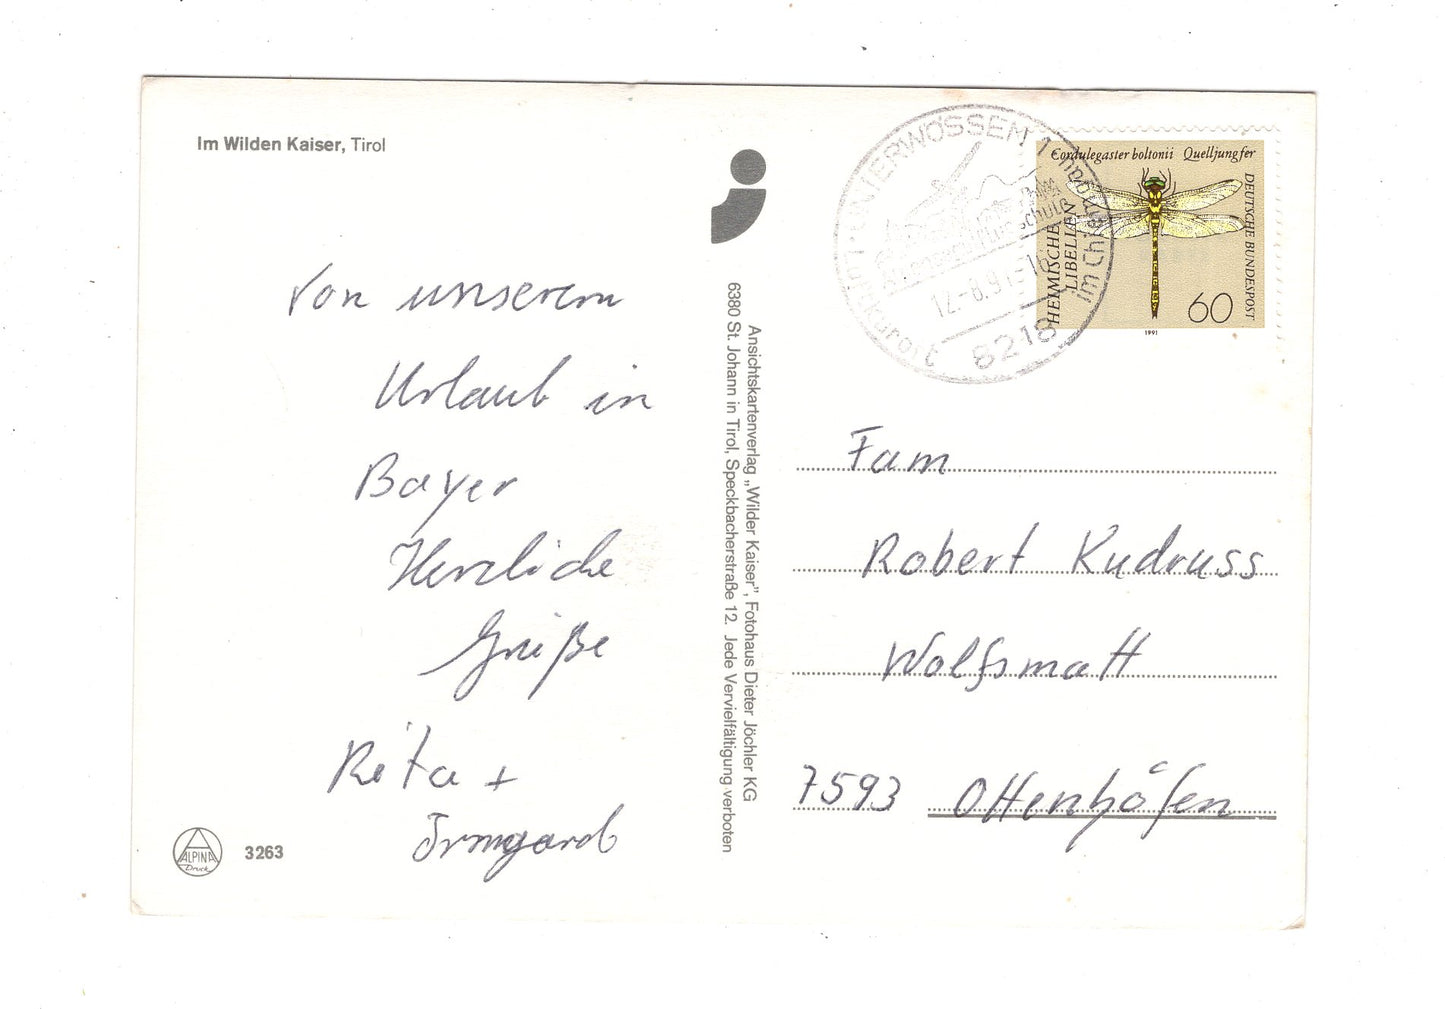 Im Wilden Kaiser, Tirol
Von unserem
Urlaub in
Bayer
Herzliche
Grüße
Rita +
Irmgard
ALPINA
Druck
3263
Ansichtskartenverlag „Wilder Kaiser", Fotohaus Dieter Jöchler KG
6380 St. Johann in Tirol, Speckbacherstraße 12. Jede Vervielfältigung verboten
UNTERWÖSSEN 1
Luftkurort
im Chiemgau
12.-8.91-16
8218
Cordulegaster boltonii Quelljungfer
HEIMISCHE
LIBELLEN
DEUTSCHE BUNDESPOST
60
1991
Fam
Robert Kudruss
Wolfsmatt
7593 Ottenhöfen